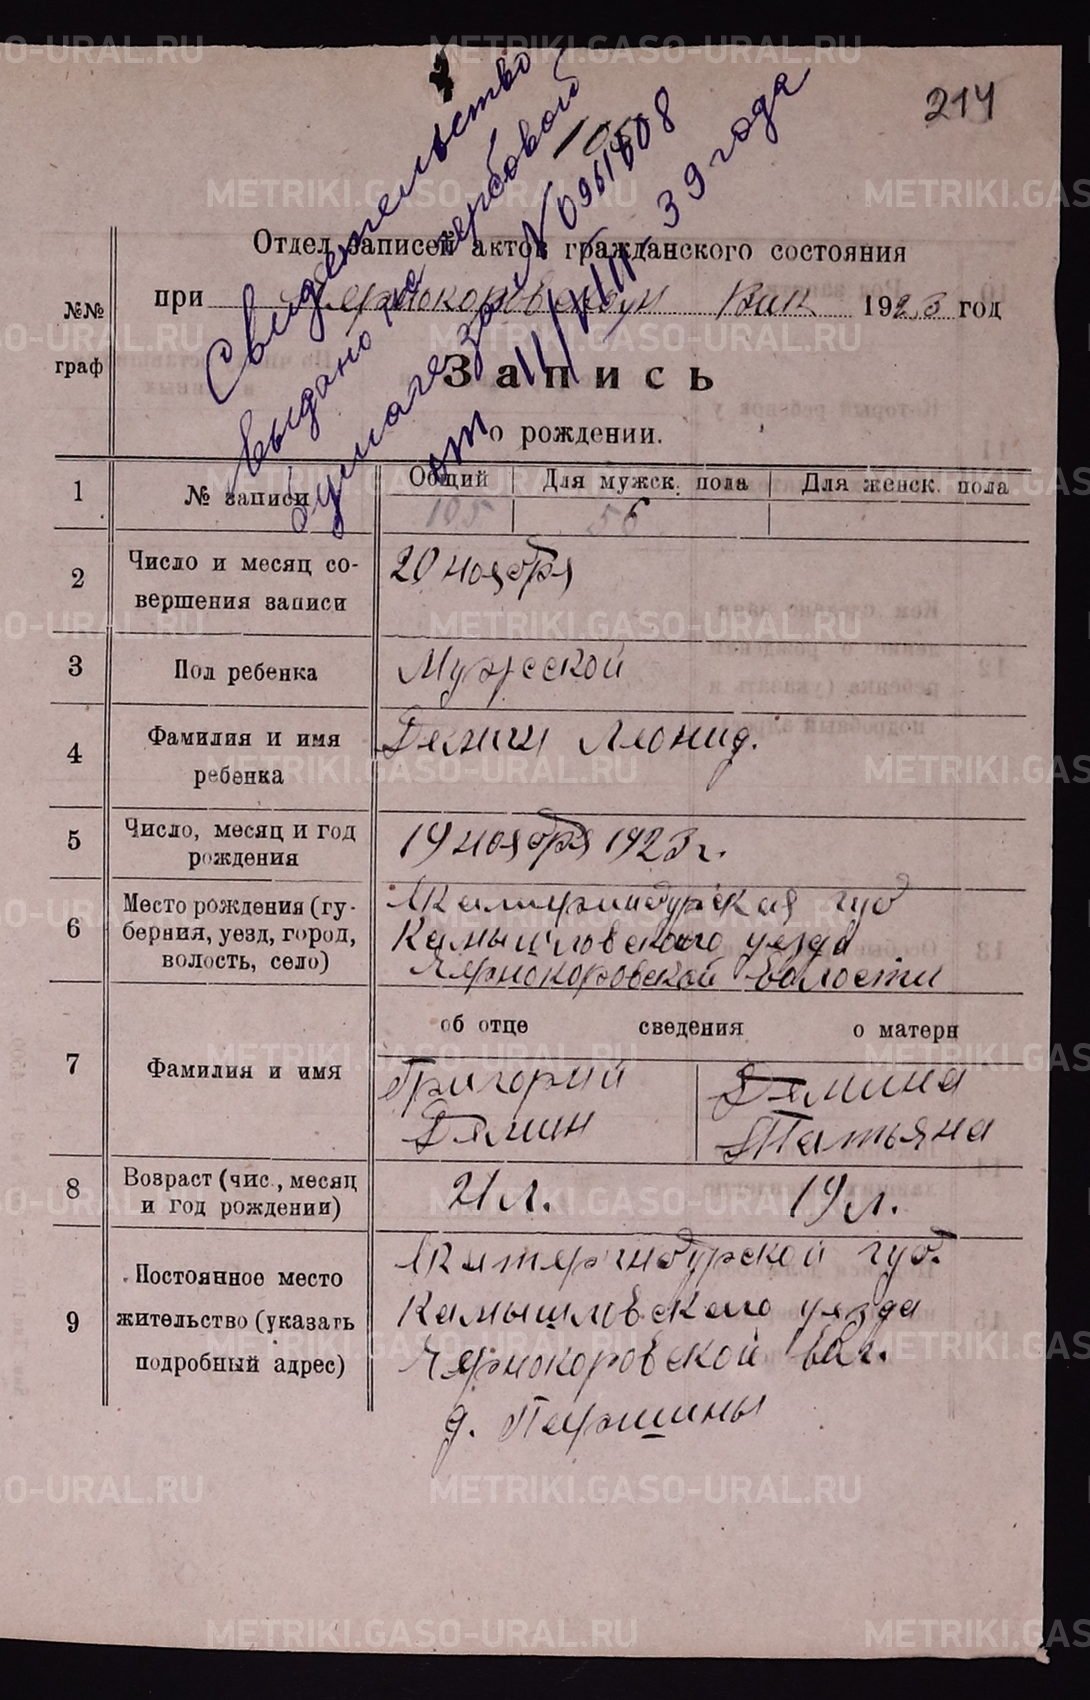 214
105
Свидетельство
выдано на гербовой
бумаге за № 0961808
от 11/VIII 39 года
Отдел записей актов гражданского состояния
при Чернокоровском Вик 1923 год
№№
граф
Запись
о рождении.
1 № записи Общий Для мужск. пола Для женск. пола
105 56
2 Число и месяц со-
вершения записи
20 ноября
3 Пол ребенка Мужеской
4 Фамилия и имя
ребенка
Демин Леонид.
5 Число, месяц и год
рождения
19 ноября 1923 г.
6 Место рождения (гу-
берния, уезд, город,
волость, село)
Екатеринбурская губ
Камышловского уезда
Чернокоровской волости
об отце сведения о матери
7 Фамилия и имя
Григорий
Демин
Демина
Татьяна
8 Возраст (чис., месяц
и год рождения)
21 л. 19 л.
9 Постоянное место
жительство (указать
подробный адрес)
Екатеринбурской губ.
Камышловского уезда
Чернокоровской вол.
д. Першины
METRIKI.GASO-URAL.RU